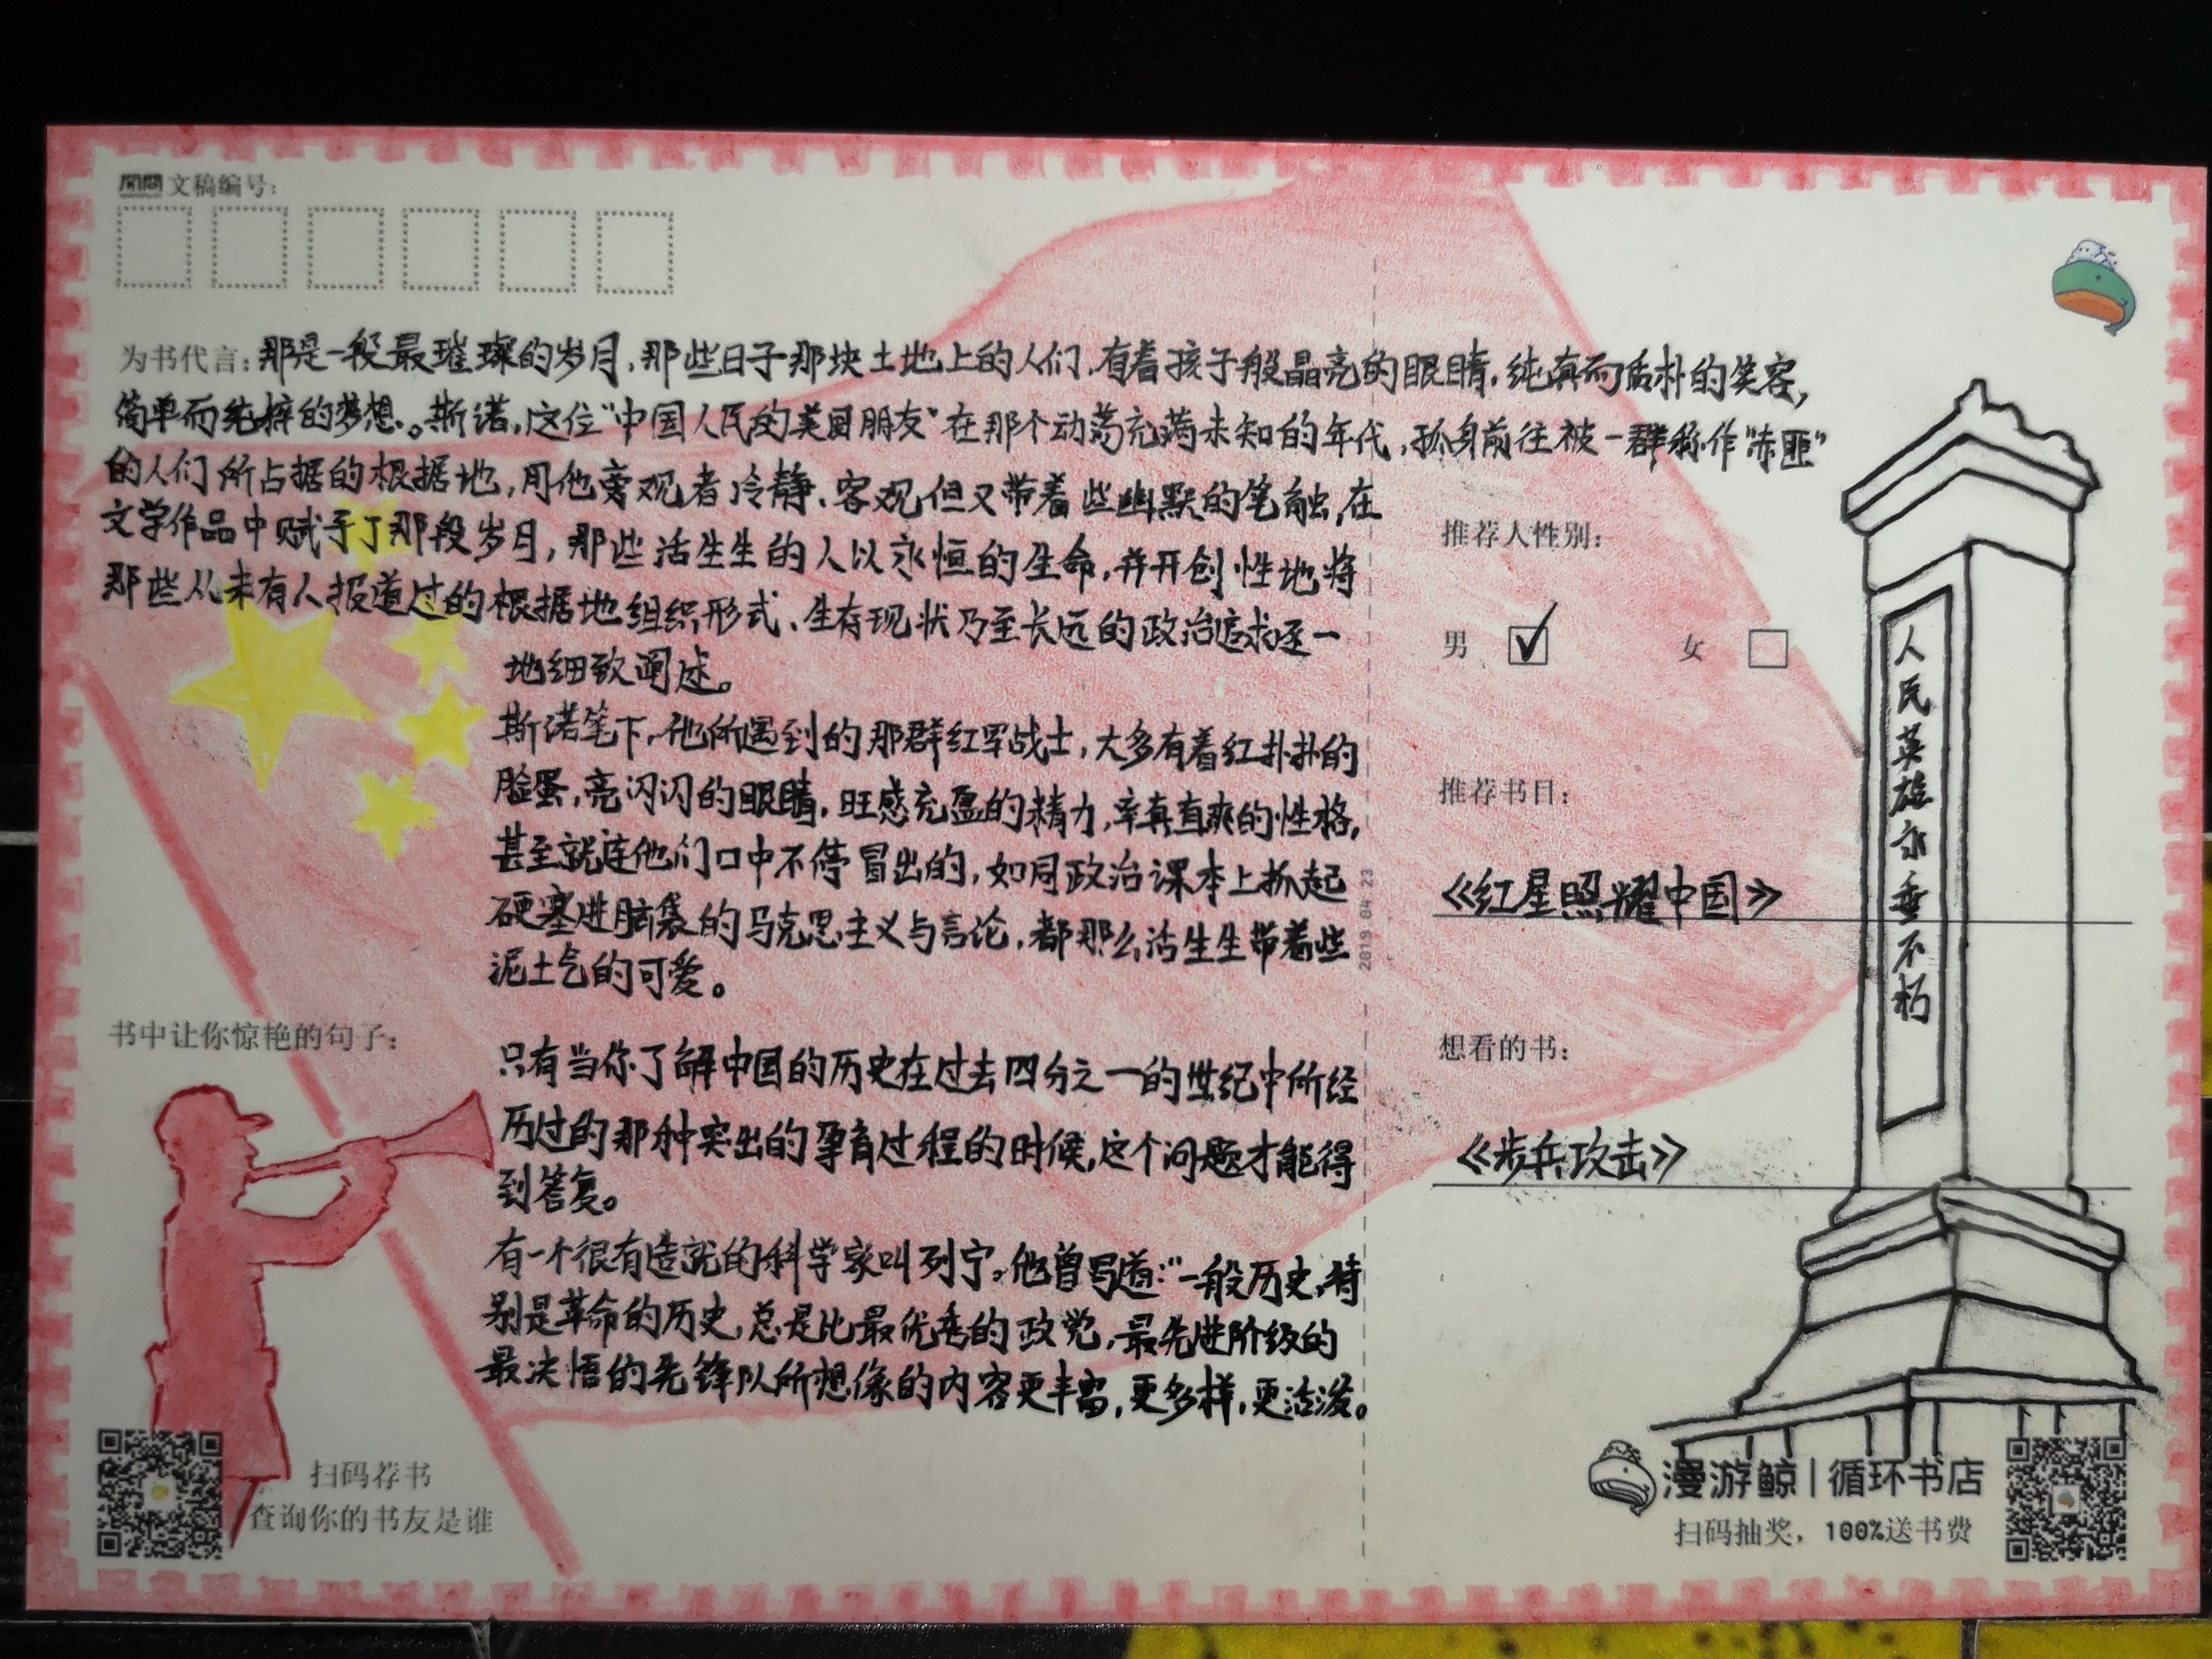 文稿编号:
为书代言:那是一般最璀璨的岁月,那些日子那块土地上的人们,有着孩子般晶亮的眼睛,纯真而质朴的笑容,
简单而纯粹的梦想。斯诺,这位“中国人民的美国朋友”在那个动荡充满未知的年代,孤身前往被一群称作“赤匪”
的人们所占据的根据地,用他旁观者冷静、客观但又带着些幽默的笔触,在
文学作品中赋予了那段岁月,那些活生生的人以永恒的生命,并开创性地将
那些从未有人报道过的根据地组织形式、生存现状乃至长远的政治追求逐一
地细致阐述。
斯诺笔下,他所遇到的那群红军战士,大多有着红扑扑的
脸蛋,亮闪闪的眼睛,旺盛充盈的精力,率真直爽的性格,
甚至就连他们口中不停冒出的,如同政治课本上抓起
硬塞进脑袋的马克思主义与言论,都那么活生生带着些
泥土气的可爱。
书中让你惊艳的句子:
只有当你了解中国的历史在过去四分之一的世纪中所经
历过的那种突出的孕育过程的时候,这个问题才能得
到答复。
有一个很有造就的科学家叫列宁,他曾写道:“一般历史,特
别是革命的历史,总是比最优秀的政党,最先进阶级的
最决悟的先锋队所想像的内容更丰富,更多样,更活泼。
扫码荐书
查询你的书友是谁
2019 04 23
推荐人性别:
男 ☑ 女 ☐
推荐书目:
《红星照耀中国》
想看的书:
《步兵攻击》
人民英雄永垂不朽
漫游鲸|循环书店
扫码抽奖,100%送书费